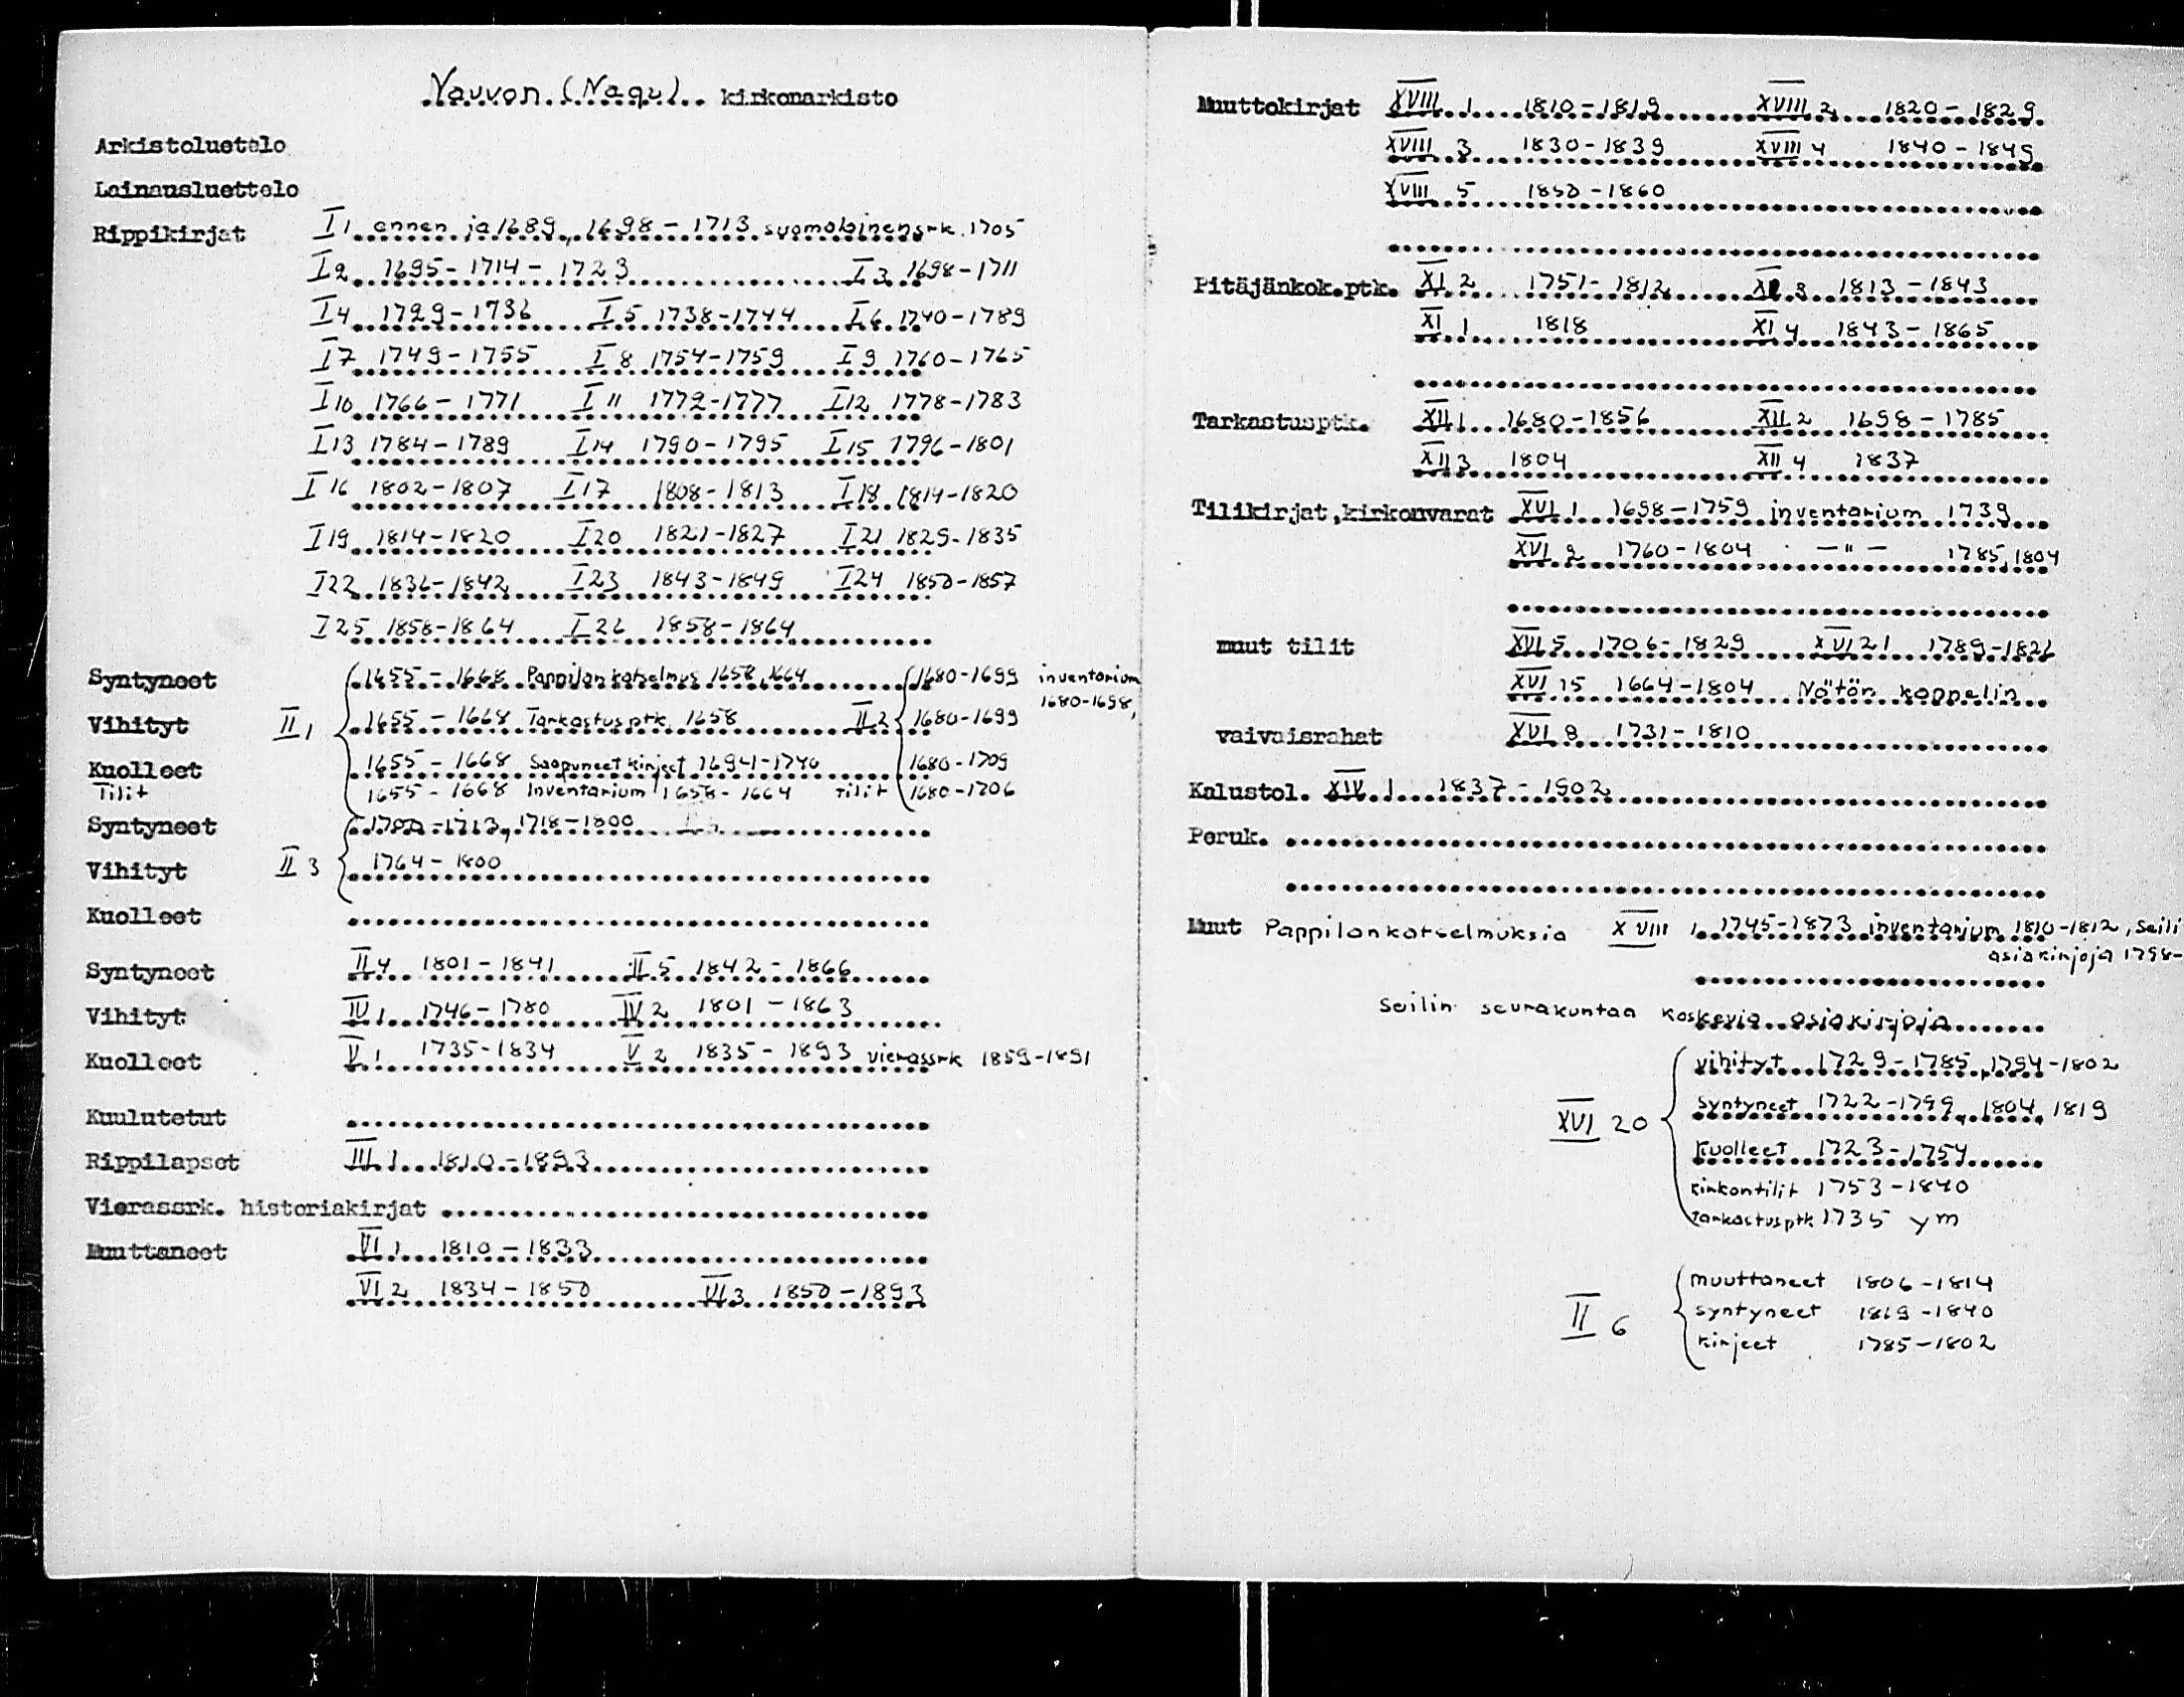 Nauvon (Nagu) kirkonarkisto
Arkistoluetelo
Lainausluettelo
Rippikirjat I 1 ennen ja 1689, 1698-1713 suomalainen srk. 1705
I 2 1695-1714-1723 I 3 1698-1711
I 4 1729-1736 I 5 1738-1744 I 6 1740-1789
I 7 1749-1755 I 8 1754-1759 I 9 1760-1765
I 10 1766-1771 I 11 1772-1777 I 12 1778-1783
I 13 1784-1789 I 14 1790-1795 I 15 1796-1801
I 16 1802-1807 I 17 1808-1813 I 18 1814-1820
I 19 1814-1820 I 20 1821-1827 I 21 1829-1835
I 22 1836-1842 I 23 1843-1849 I 24 1850-1857
I 25 1858-1864 I 26 1858-1864
Syntyneet 1655-1668 Pappilankatselmus 1658, 1664 1680-1699 inventarium
1680-1698,
Vihityt II 1 1655-1668 Tarkastusptk 1658 II 2 1680-1699
Kuolleet 1655-1668 Saapuneet kirjeet 1694-1740 1680-1709
Tilit 1655-1668 Inventarium 1658-1664 Tilit 1680-1706
Syntyneet 1700-1713, 1718-1800
Vihityt II 3 1764-1800
Kuolleet
Syntyneet II 4 1801-1841 II 5 1842-1866
Vihityt IV 1 1746-1780 IV 2 1801-1863
Kuolleet V 1 1735-1834 V 2 1835-1893 vierassrk 1859-1891
Kuulutetut
Rippilapset III 1 1810-1893
Vierassrk. historiakirjat
Muuttaneet VI 1 1810-1833
VI 2 1834-1850 VI 3 1850-1893
Muuttokirjat XVIII 1 1810-1819 XVIII 2 1820-1829
XVIII 3 1830-1839 XVIII 4 1840-1849
XVIII 5 1850-1860
Pitäjänkok.ptk. XI 2 1751-1812 XI 3 1813-1843
XI 1 1818 XI 4 1843-1865
Tarkastusptk. XII 1 1680-1856 XII 2 1698-1785
XII 3 1804 XII 4 1837
Tilikirjat, kirkonvarat XVI 1 1698-1759 inventarium 1739
XVI 2 1760-1804 -"- 1785, 1804
muut tilit XVI 5 1706-1829 XVI 21 1789-1821
XVI 15 1664-1804 Nötön kappelin
vaivaisrahat XVI 8 1731-1810
Kalustol. XIV 1 1837-1902
Peruk.
Muut Pappilankatselmuksia XVIII 1 1745-1873 inventarium 1810-1812, Seili
asiakirjoja 1798-
Seilin seurakuntaa koskevia asiakirjoja
vihityt 1729-1785, 1794-1802
XVI 20 syntyneet 1722-1799, 1804, 1819
Kuolleet 1723-1754
kirkontilit 1753-1840
Tarkastusptk 1735 ym
muuttaneet 1806-1814
II 6 syntyneet 1819-1840
kirjeet 1785-1802